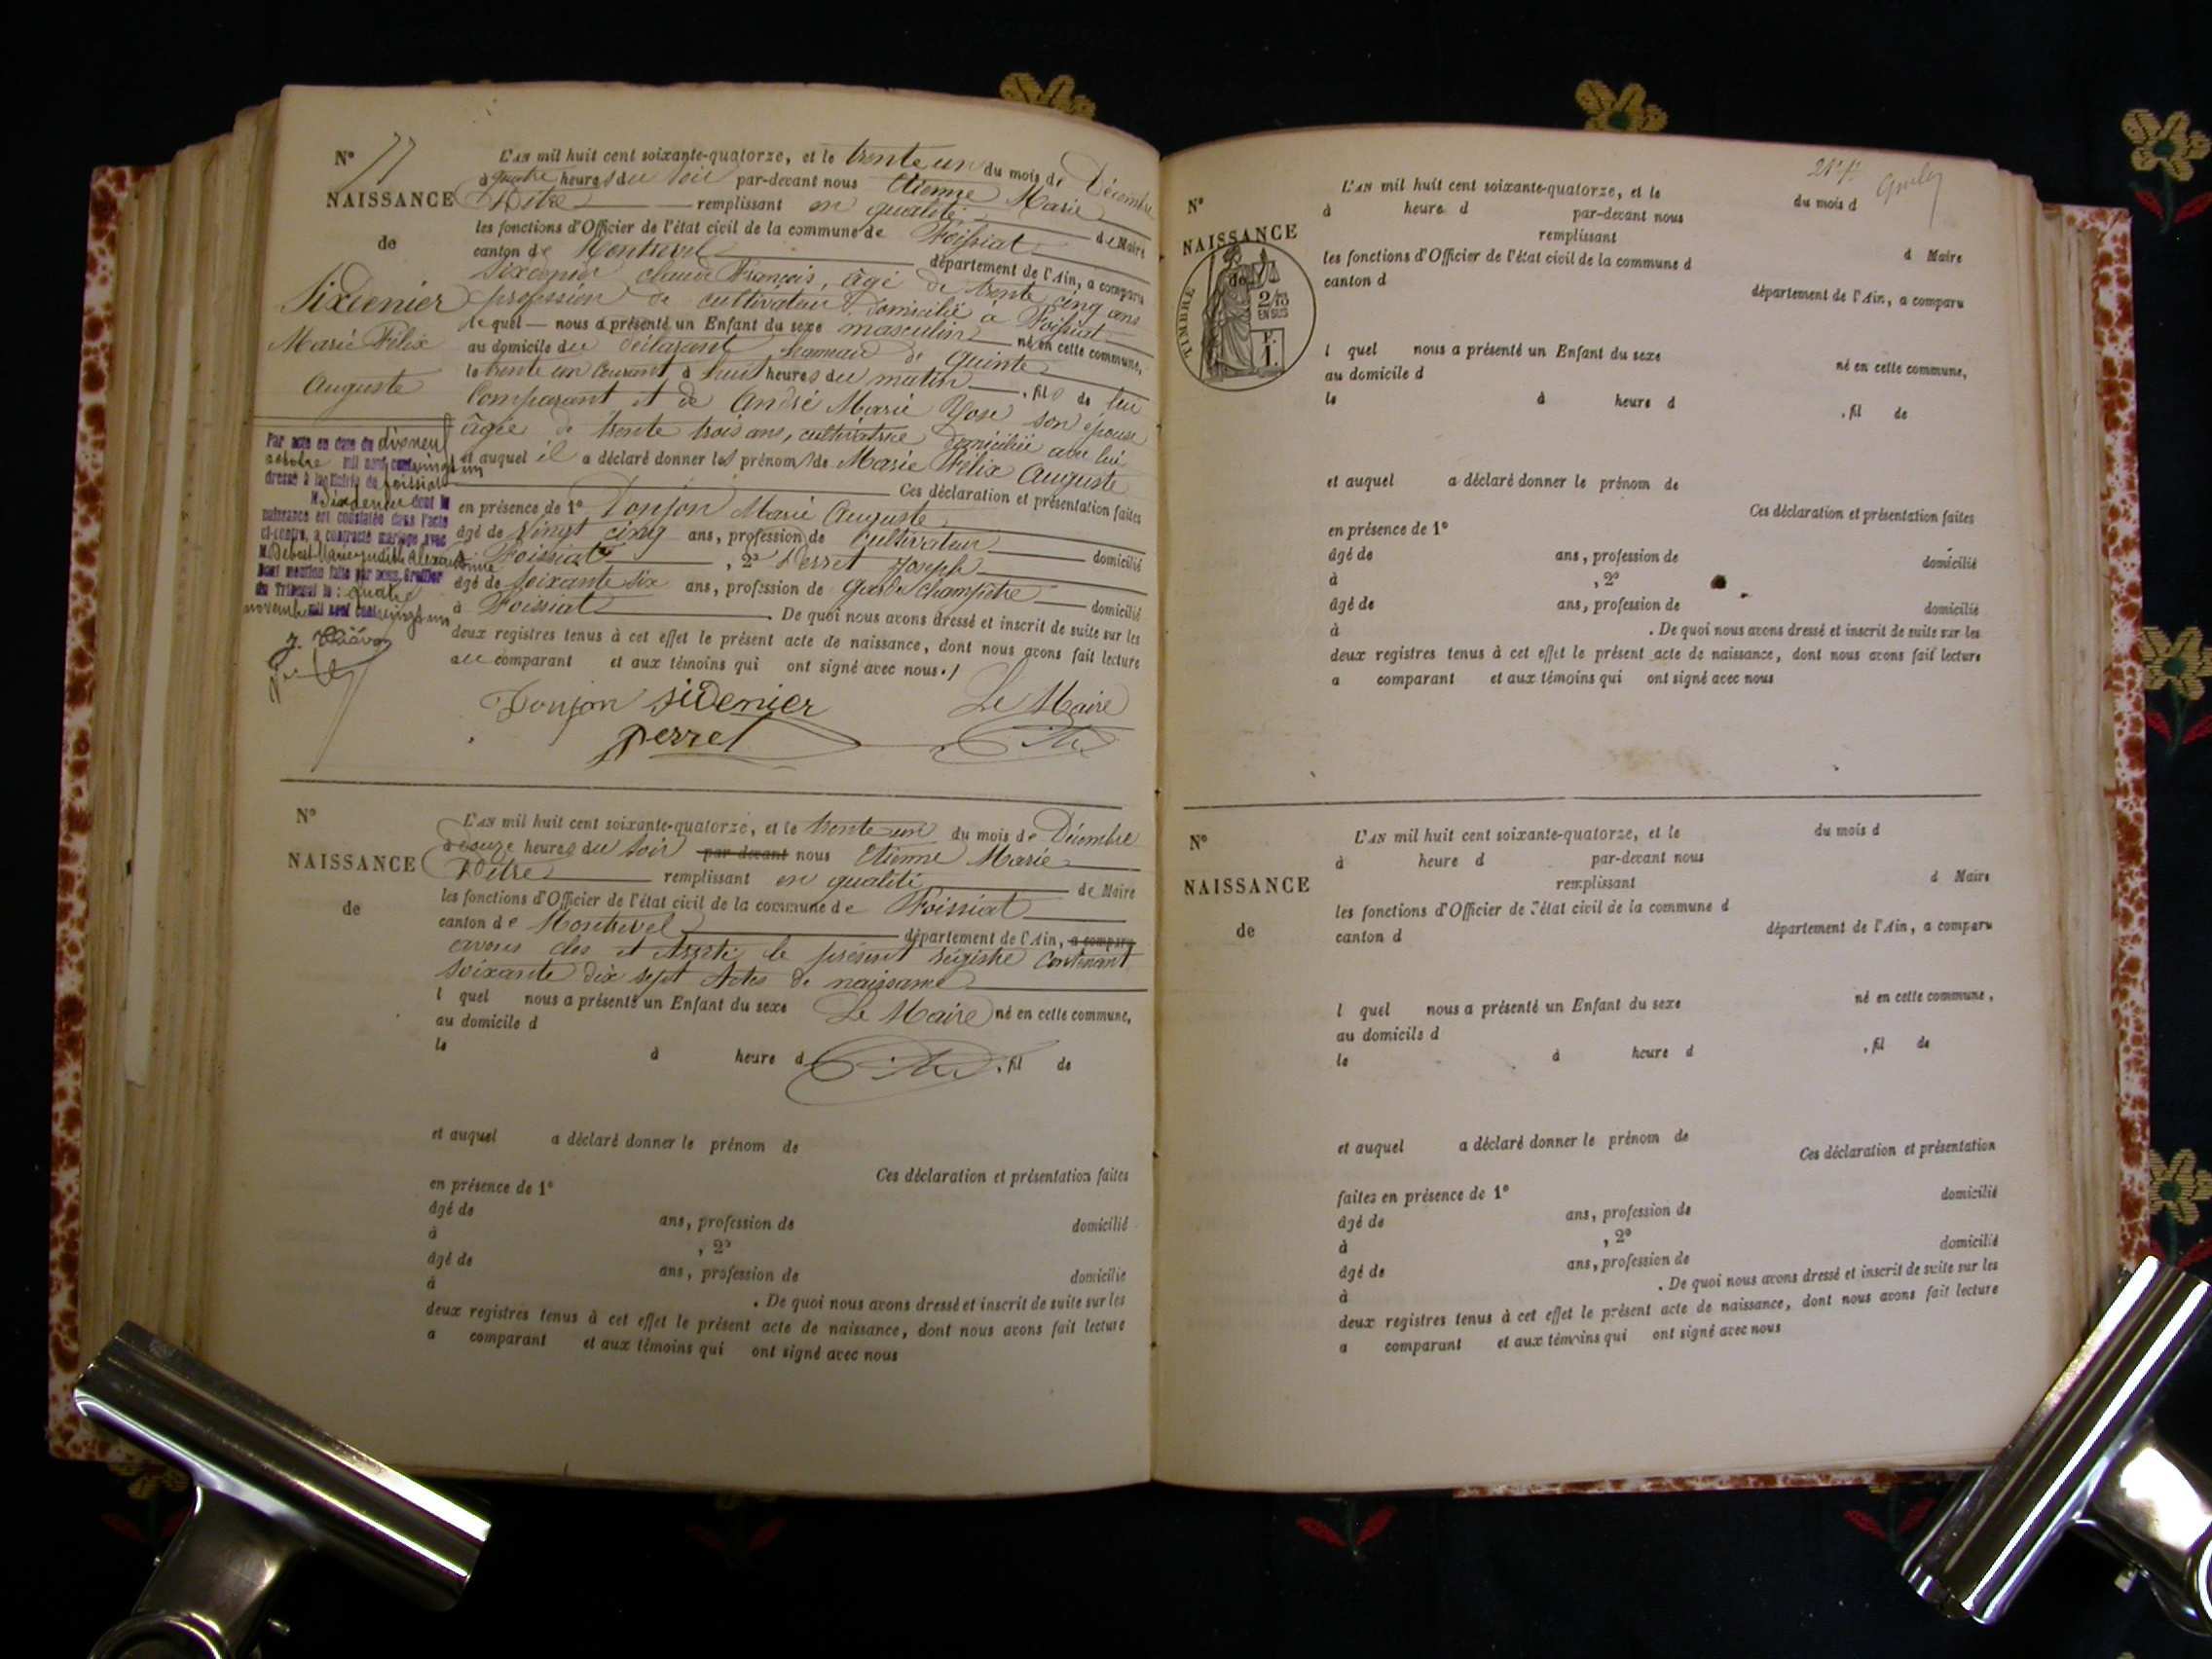 N° 77
NAISSANCE
de
Sixdenier
Marie Félix
Auguste
L'AN mil huit cent soixante-quatorze, et le trente un du mois de Décembre
à quatre heures du soir par-devant nous Etienne Marie
remplissant en qualité de Maire
les fonctions d'Officier de l'état civil de la commune de Foissiat
canton de Montrevel département de l'Ain, a comparu
Sixdenier Claude François, âgé de trente cinq ans
profession de cultivateur domicilié à Foissiat
le quel nous a présenté un Enfant du sexe masculin né en cette commune,
au domicile du déclarant hameau de Quinte
le trente un courant à huit heures du matin, fils de lui
Comparant et de André Marie Yose son épouse
âgée de trente trois ans, cultivatrice domiciliée avec lui
et auquel il a déclaré donner les prénoms de Marie Félix Auguste
Ces déclaration et présentation faites
en présence de 1° Donjon Marie Auguste
âgé de Vingt cinq ans, profession de Cultivateur domicilié
à Foissiat, 2° Perret Joseph
âgé de soixante six ans, profession de Garde champêtre domicilié
à Foissiat. De quoi nous avons dressé et inscrit de suite sur les
deux registres tenus à cet effet le présent acte de naissance, dont nous avons fait lecture
au comparant et aux témoins qui ont signé avec nous./
Donjon sidenier Le Maire
perret
Par acte en date du dixneuf
octobre mil neuf cent vingt un
dressé à la Mairie de Foissiat
M. Sixdenier dont la
naissance est constatée dans l'acte
ci-contre, a contracté mariage avec
M. Debost Marie Judith Alexandrine
Dont mention faite par nous, Greffier
du Tribunal le : quatre
novembre mil neuf cent vingt un
N°
NAISSANCE
de
L'AN mil huit cent soixante-quatorze, et le trente un du mois de Décembre
à douze heures du soir par-devant nous Etienne Marie
remplissant en qualité de Maire
les fonctions d'Officier de l'état civil de la commune de Foissiat
canton de Montrevel département de l'Ain, a comparu
avons clos et arrêté le présent régistre contenant
soixante dix sept Actes de naissance
l quel nous a présenté un Enfant du sexe Le Maire né en cette commune,
au domicile d
le à heure d , fil de
et auquel a déclaré donner le prénom de
Ces déclaration et présentation faites
en présence de 1°
âgé de ans, profession de domicilié
à , 2°
âgé de ans, profession de domicilié
à . De quoi nous avons dressé et inscrit de suite sur les
deux registres tenus à cet effet le présent acte de naissance, dont nous avons fait lecture
a comparant et aux témoins qui ont signé avec nous
N°
NAISSANCE
de
TIMBRE
2/10
EN SUS
F.
1.
L'AN mil huit cent soixante-quatorze, et le du mois d
à heure d par-devant nous
remplissant d Maire
les fonctions d'Officier de l'état civil de la commune d
canton d département de l'Ain, a comparu
l quel nous a présenté un Enfant du sexe né en cette commune,
au domicile d
le à heure d , fil de
et auquel a déclaré donner le prénom de
Ces déclaration et présentation faites
en présence de 1°
âgé de ans, profession de domicilié
à , 2°
âgé de ans, profession de domicilié
à . De quoi nous avons dressé et inscrit de suite sur les
deux registres tenus à cet effet le présent acte de naissance, dont nous avons fait lecture
a comparant et aux témoins qui ont signé avec nous
N°
NAISSANCE
de
L'AN mil huit cent soixante-quatorze, et le du mois d
à heure d par-devant nous
remplissant d Maire
les fonctions d'Officier de l'état civil de la commune d
canton d département de l'Ain, a comparu
l quel nous a présenté un Enfant du sexe né en cette commune,
au domicile d
le à heure d , fil de
et auquel a déclaré donner le prénom de
Ces déclaration et présentation
faites en présence de 1°
âgé de ans, profession de domicilié
à , 2°
âgé de ans, profession de domicilié
à . De quoi nous avons dressé et inscrit de suite sur les
deux registres tenus à cet effet le présent acte de naissance, dont nous avons fait lecture
a comparant et aux témoins qui ont signé avec nous